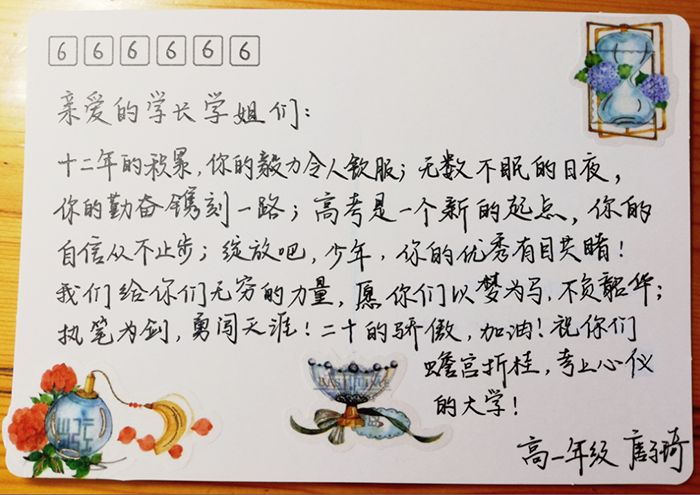 666666
亲爱的学长学姐们：
十二年的积累，你的毅力令人钦服；无数不眠的日夜，
你的勤奋镌刻一路；高考是一个新的起点，你的
自信从不止步；绽放吧，少年，你的优秀有目共睹！
我们给你们无穷的力量，愿你们以梦为马，不负韶华；
执笔为剑，勇闯天涯！二十的骄傲，加油！祝你们
蟾宫折桂，考上心仪
的大学！
高一年级 唐琦